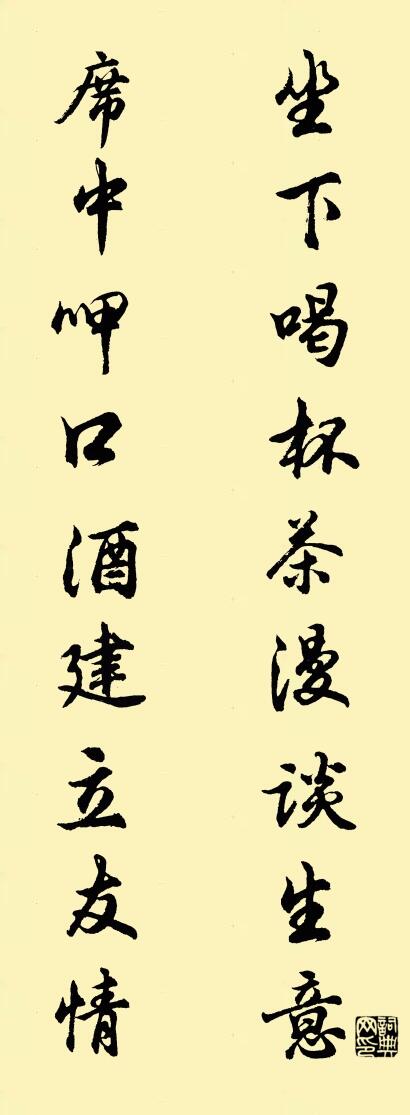 坐下喝杯茶漫谈生意
席中呷口酒建立友情
詞典网印